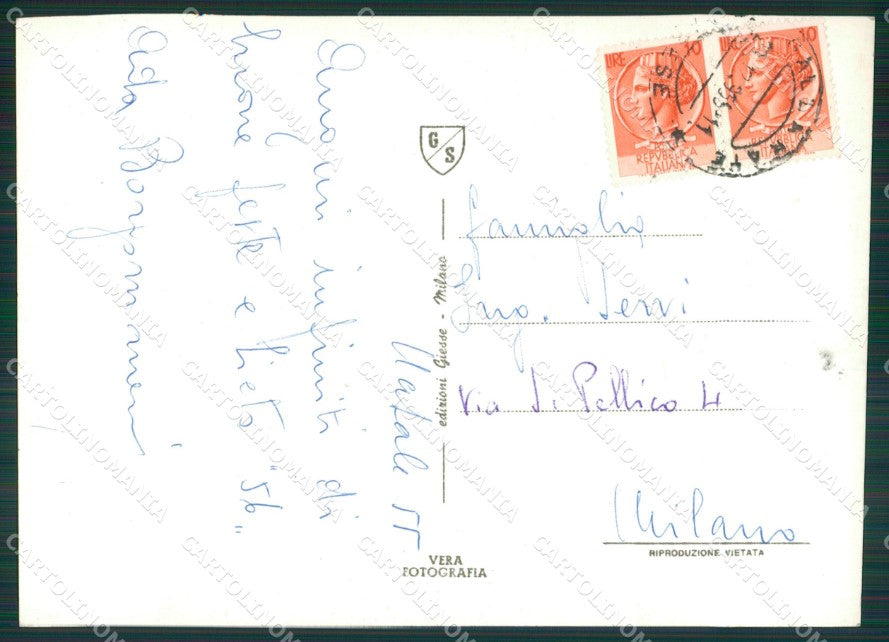 Natale 55
Auguri infiniti di
buone feste e lieto "56"
Ada
LIRE 10
REPVBBLICA
ITALIANA
LIRE 10
REPVBBLICA
ITALIANA
G S
edizioni Giesse - Milano
Famiglia
Ing. Servi
Via S. Pellico 4
Milano
RIPRODUZIONE VIETATA
VERA
FOTOGRAFIA
CARTOLINOMANIA